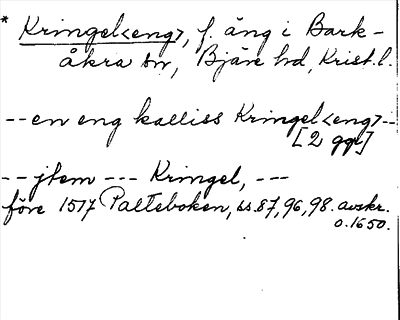 * Kringel<eng>, f. äng i Bark-
åkra sn, Bjäre hd, Krist. l.
-- en eng kalliss Kringel<eng> --
[2 ggr]
-- jtem --- Kringel, ---
före 1517 Palteboken, ss. 87, 96, 98. avskr.
o. 1650.